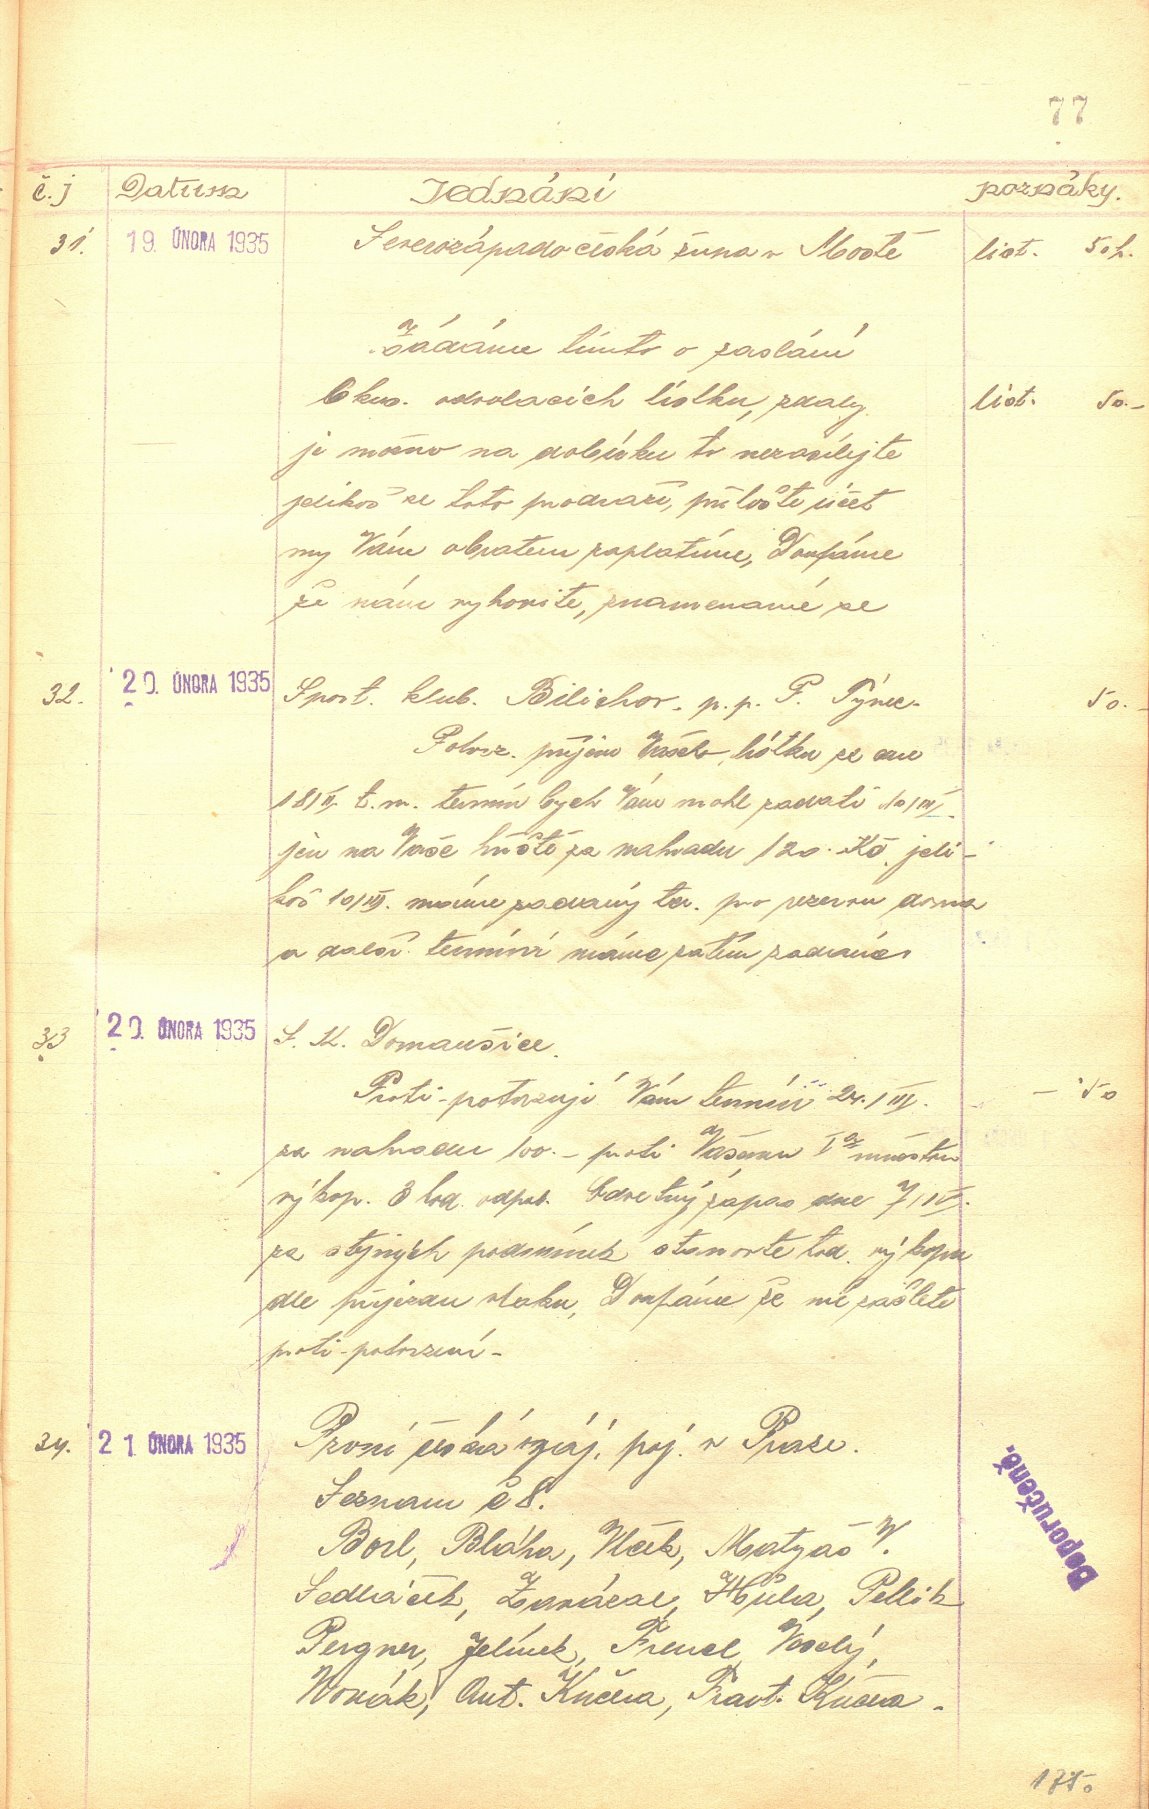 77
č.j Datum Jednání poznáky.
31. 19. ÚNORA 1935 Severozápadočeská župa v Mostě list. 50 h.
Žádáme tímto o zaslání
6 kus. odvolacích lístku, zdaly list. 50.-
je možno na dobírku to nezasílejte
jelikož se toto prodraží, přiložte účet
my Vám obratem zaplatíme, Doufáme
že nám vyhovíte, znamenáme se
32. 20. ÚNORA 1935 Sport. klub. Bilichov. p.p. P. Týnec. 50.-
Potvrz. příjem Vašeho lístku ze dne
18/II. t.m. termín bych Vám mohl zadati 10/III.
jen na Vaše hřiště za nahradu 120. Kč. jeli-
kož 10/III. máme zadaný ter. pro rezervu doma
a další termíni máme zatím zadané.
33 20. ÚNORA 1935 S. K. Domaušice.
Proti-potvrzuji Vám termín 24./III. - 50
za nahradu 100.- proti Vašemu I mužstvu
výkop. 3 hod. odpol. Odvetný zápas dne 7/IV.
za stejných podmínek stanovte hod. výkopu
dle příjezdu vlaku, Doufáme že mě zašlete
proti-potvrzení-
34. 21 ÚNORA 1935 První česká vzáj. poj. v Praze.
Seznam č 8. Doporučeně.
Borl, Bláha, Vlček, Matyáš V.
Sedláček, Zavázal, Hůla, Pellik
Pergner, Jelínek, Frencl, Veselý,
Novák, Ant. Kučera, Frant. Kučera.